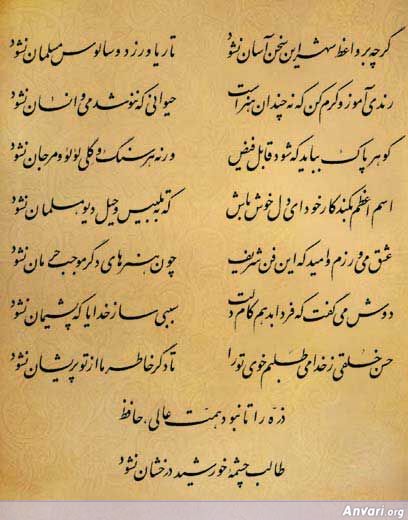 گرچه بر واعظ شهر این سخن آسان نشود تا ریا ورزد و سالوس مسلمان نشود
رندی آموز و کرم کن که نه چندان هنر است حیوانی که ننوشد می و انسان نشود
گوهر پاک بباید که شود قابل فیض ورنه هر سنگ و گلی لؤلؤ و مرجان نشود
اسم اعظم بکند کار خود ای دل خوش باش که به تلبیس و حیل دیو مسلمان نشود
عشق می ورزم و امید که این فن شریف چون هنرهای دگر موجب حرمان نشود
دوش می گفت که فردا بدهم کام دلت سببی ساز خدایا که پشیمان نشود
حسن خلقی ز خدا می طلبم خوی تو را تا دگر خاطر ما از تو پریشان نشود
ذره را تا نبود همت عالی، حافظ
طالب چشمه خورشید درخشان نشود
Anvari.org